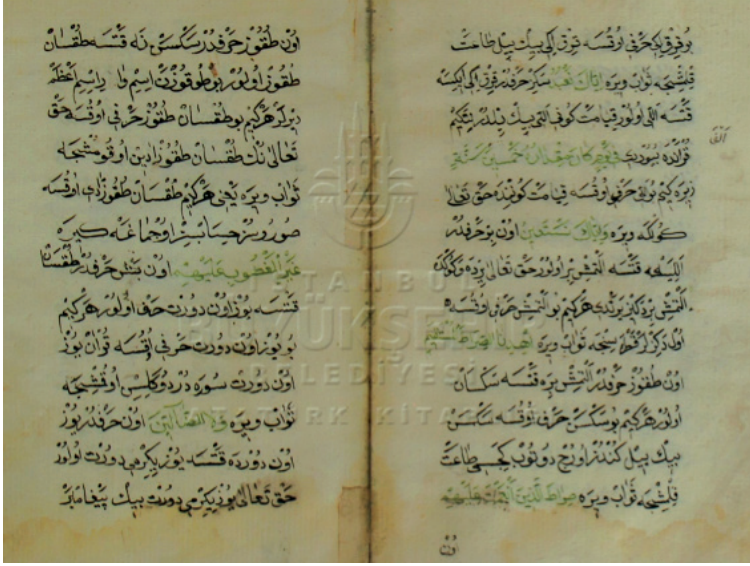 بو قرق ايكى حرفى اوقسه قرق ايكى بيك ييل طاعت
قلمشجه ثواب ويره اياك نعبد سكز حرفدر قرق ايكى ايكسه
قتسه اللى اولور قيامت كونى اللى بيك ييلدر نتكيم
قرآنده بيوردى فى يوم كان مقداره خمسين الف
زيره كيم بو اللى حرفى اوقسه قيامت كوننده حق تعالى
كولكه ويره واياك نستعين اون بر حرفدر
اللييه قتسه التمش بر اولور حق تعالى يرده و كوكده
التمش بر دكز يرتدى هركيم بو التمش بر حرفى اوقسه
اول دكزلر قطره سنجه ثواب ويره اهدنا الصراط المستقيم
اون طقوز حرفدر التمش بره قتسه سكسان
اولور هركيم بو سكسن حرفى اوقسه سكسن
بيك ييل كندز اورج دوتوب كيجه طاعت
قلمشجه ثواب ويره صراط الذين انعمت عليهم
اون
اون طقوز حرفدر سكسنه قتسه طقسان
طقوز اولور بو طوقوزن اسم وار اسم اعظم
ديرلر هركيم بو طقسان طقوز حرفى اوقسه حق
تعالى نك طقسان طقوز ادين اوقومشجه
ثواب ويره يعنى هركيم طقسان طقوز ادى اوقسه
صوروسز حسابسز اوجماغه كيره
غير المغضوب عليهم اون بش حرفدر طقسان
قتسه يوز اون دورت حرف اولور هركيم
بو يوز اون دورت حرفى اوقسه قرآن يوز
اون دورت سوره در دوكلىسن اوقمشجه
ثواب ويره ولا الضالين اون حرفدر يوز
اون دورده قتسه يوز يكرمى دورت اولور
حق تعالى يوز يكرمى دورت بيك پيغامبر